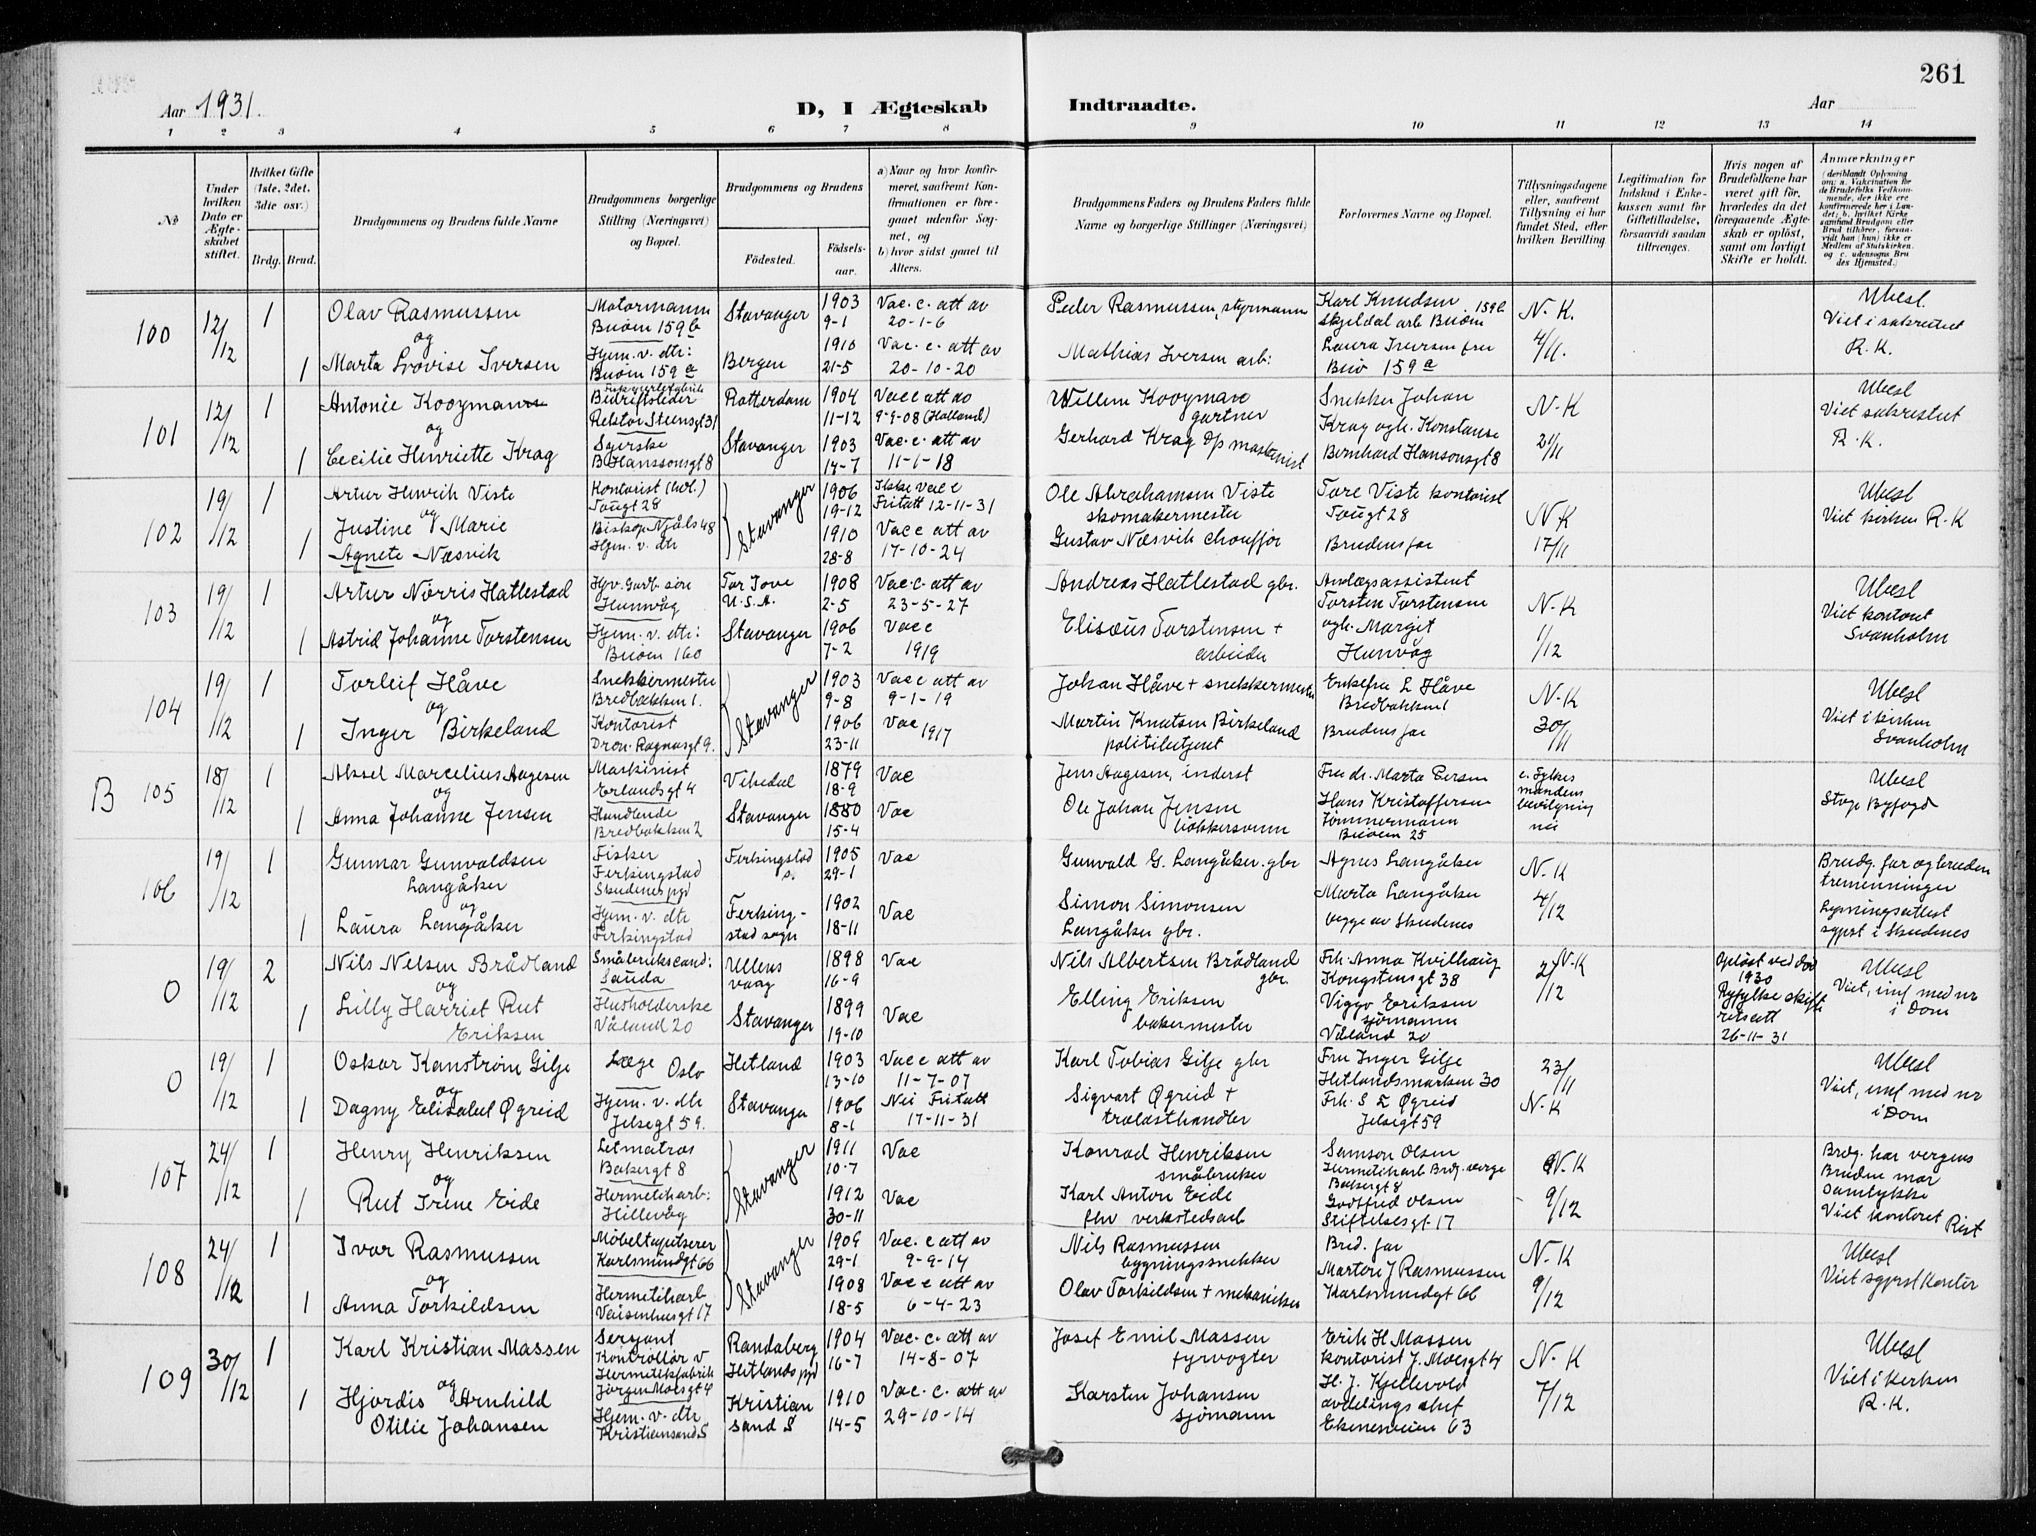 261
Aar 1931.
D, I Ægteskab Indtraadte.
Aar
1 2 3 4 5 6 7 8 9 10 11 12 13 14
No
Under hvilken Dato er Ægteskabet stiftet.
Hvilket Gifte (1ste, 2det, 3die osv.)
Brdg. Brud.
Brudgommens og Brudens fulde Navne
Brudgommens borgerlige Stilling (Næringsvei) og Bopæl.
Brudgommens og Brudens
Födested.
Födselsaar.
a) Naar og hvor konfirmeret, saafremt Konfirmationen er foregaaet udenfor Sognet, og
b) hvor sidst gaaet til Alters.
Brudgommens Faders og Brudens Faders fulde Navne og borgerlige Stillinger (Næringsvei)
Forlovernes Navne og Bopæl.
Tillysningsdagene eller, saafremt Tillysning ei har fundet Sted, efter hvilken Bevilling.
Legitimation for Indskud i Enkekassen samt for Giftetilladelse, forsaavidt saadan tiltrænges.
Hvis nogen af Brudefolkene har været gift för, hvorledes da det foregaaende Ægteskab er oplöst, samt om lovligt Skifte er holdt.
Anmærkninger (deriblandt Oplysning om: a. Vakcination för de Brudefolks Vedkommende, der ikke ere konfirmerede her i Landet; b. hvilket Kirkesamfund Brudgom eller Brud tilhörer, forsaavidt han (hun) ikke er Medlem af Statskirken, og c. udensogns Brudes Hjemsted.)
100
12/12 1 Olav Rasmussen Motormann Buøen 159b Stavanger 1903 9-1 Vac. c. att av 20-1-6 Peder Rasmussen, styrmann Karl Knudsen skjeldal arb Buøen 159b N.K. 4/11. Ubesl. Viet i sakrestiet R.K.
og
1 Marta Lovise Iversen Hjem. v. dtr: Buøen 159a Bergen 1910 21-5 Vac. c. att av 20-10-20 Mathias Iversen arb: Laura Iversen fru Buø 159a
101
12/12 1 Antonie Kooyman Bedriftsleder Rektor Steensgt 31 Rotterdam 1904 11-12 Vac c att av 9-9-08 (Holland) Willem Kooyman gartner Snekker Johan Krag ogh. Konstanse Bernhard Hansonsgt 8 N-K 21/11 Ubesl Viet sakrestiet R.K.
og
1 Cecilie Henriette Krag Syerske B Hanssonsgt 8 Stavanger 1903 14-7 Vac. c. att av 11-1-18 Gerhard Krag
102
19/12 1 Artur Henrik Viste Kontorist Tougt 28 Stavanger 1906 19-12 Ikke vac c Fritatt 12-11-31 Ole Abrahamsen Viste skomakermester Tore Viste kontorist Tougt 28 N K 17/11 Ubesl Viet kirken R.K
og
1 Justine Marie Agnete Næsvik Biskop Njåls 48 Hjem. v. dtr 1910 28-8 Vac c att av 17-10-24 Gustav Næsvik chouffør Brudens far
103
19/12 1 Artur Nørris Hatlestad Hjv. Gardb. søn Hunvåg U.S.A. 1908 2-5 Vac. c. att av 23-5-27 Andreas Hatlestad gbr. Anlegsassistent Torsten Torstensen ogh. Margit Hunvåg N-K 1/12 Ubesl Viet kontoret Svanholm
og
1 Astrid Johanne Torstensen Hjem. v. dtr: Buøen 160 Stavanger 1906 7-2 Vac c 1919 Elisæus Torstensen + arbeider
104
19/12 1 Torleif Håve Snekkermester Bredbakken 1. Stavanger 1903 9-8 Vac c att av 9-1-19 Johan Håve + snekkermester Enkefru L Håve Bredbakken 1 N-K 30/11 Ubesl Viet i kirken Svanholm
og
1 Inger Birkeland Kontorist Dron. Ragnasgt 9. 1906 23-11 Vac 1917 Martin Knutsen Birkeland politibetjent Brudens far
B 105
18/12 1 Aksel Marcelius Aagesen Maskinist Erlandsgt 4 Vikedal 1879 18-9 Vac Jens Aagesen, inderst Fru dr. Marta Hans Kristoffersen Tømmermann Buøen 25 e. fylkesmandens bevilgning Ubesl Stvgr Byfogd
og
1 Anna Johanne Jensen Handlende Bredbakken 2 Stavanger 1880 15-4 Vac Ole Johan Jensen
106
19/12 1 Gunnar Gunvaldsen Langåker Fisker Ferkingstad Skudenes pgd Ferkingstad s. 1905 29-1 Vac Gunvald G. Langåker. gbr Agnes Langåker Marta Langåker begge av Skudenes N.K 4/12 Brudg. far og bruden tremenninger Lysningsattest sgpst i Skudenes
og
1 Laura Langåker Hjem. v. dtr Ferkingstad Ferkingstad sogn 1902 18-11 Vac Simon Simonsen Langåker gbr.
0
19/12 2 Nils Nelsen Brådland Småbrukscand: Sauda Ullensvaag 1898 16-9 Vac Nils Albertsen Brådland gbr. Frk. Anna Kvilhaug Kongstensgt 38 Viggo Eriksen sjømann Våland 20 N-K 2/12 Opløst ved død 1930 Ryfylke skifteretsatt 26-11-31 Ubesl Viet, inf med nr i Dom
og
1 Lilly Harriet Rut Eriksen Husholderske Våland 20 Stavanger 1899 19-10 Vac Elling Eriksen bakermester
0
19/12 1 Oskar Kanstrøm Gilje Læge Oslo Hetland 1903 13-10 Vac c att av 11-7-07 Karl Tobias Gilje gbr Fru Inger Gilje Hetlandsmarken 30 Frk. S E Øgreid Jelsegt 59 23/11 N-K Ubesl Viet, inf med nr i Dom
og
1 Dagny Elisabet Øgreid Hjem. v. dtr Jelsegt 59. Stavanger 1906 8-1 Nei Fritatt 17-11-31 Sigvart Øgreid + trælasthandler
107
24/12 1 Henry Henriksen Letmatros Bakergt 8 Stavanger 1911 10-7 Vac Konrad Henriksen småbruker Samson Olsen Hermetikarb Brdg. verge Bakergt 8 Godtfred Olsen Stiftelsesgt 17 N.K 9/12 Brdg. har vergens Bruden mor samtykke Viet kontoret Rist
og
1 Rut Irene Eide Hermetikarb: Hillevåg 1912 30-11 Vac Karl Anton Eide fhv verkstedsarb
108
24/12 1 Ivar Rasmussen Møbeltapetserer Karlsmindgt 66 Stavanger 1909 29-1 Vac. c att av 9-9-14 Nils Rasmussen bygningssnekker Brud. far Martin J Rasmussen Karlsmindgt 66 N.K 9/12 Ubesl Viet sgprst kontor
og
1 Anna Torkildsen Hermetikarb Vaisenhusgt 17 1908 18-5 Vac c att av 6-4-23 Olav Torkildsen + mekaniker
109
30/12 1 Karl Kristian Massen Sersjant Kontrollør v Hermetikkfabrik Jørgen Moesgt 4 Randaberg Hetlands pgd 1904 16-7 Vac. c. att av 14-8-07 Josef Emil Massen fyrvogter Erik H Massen kontorist J. Moesgt 4 H. J. Kjellevold avdelings chef Ekeneveien 63 N-K 7/12 Ubesl Viet i kirken R.K.
og
1 Hjørdis Arnhild Otilie Johansen Hjem. v. dtr Kristiansand S Kristiansand S 1910 14-5 Vac. c. att av 29-10-14 Karsten Johansen sjømann